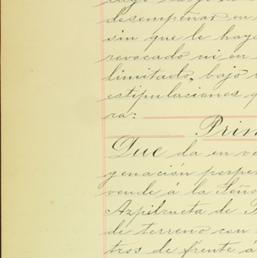 desempeñar en
sin que le haya
revocado ni en
limitado, bajo
estipulaciones
ra:
Prim
Que da en ve
genación perpe
vende á la Seño
Azpilcueta de
de terreno con
tros de frente á